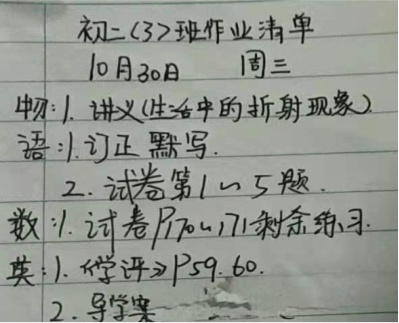 初二〈3〉班作业清单
10月30日 周三
物:1. 讲义(生活中的折射现象)
语:1.订正默写.
2. 试卷第1~5题.
数:1. 试卷P170~171剩余练习.
英:1.《学评》P59.60.
2. 导学案